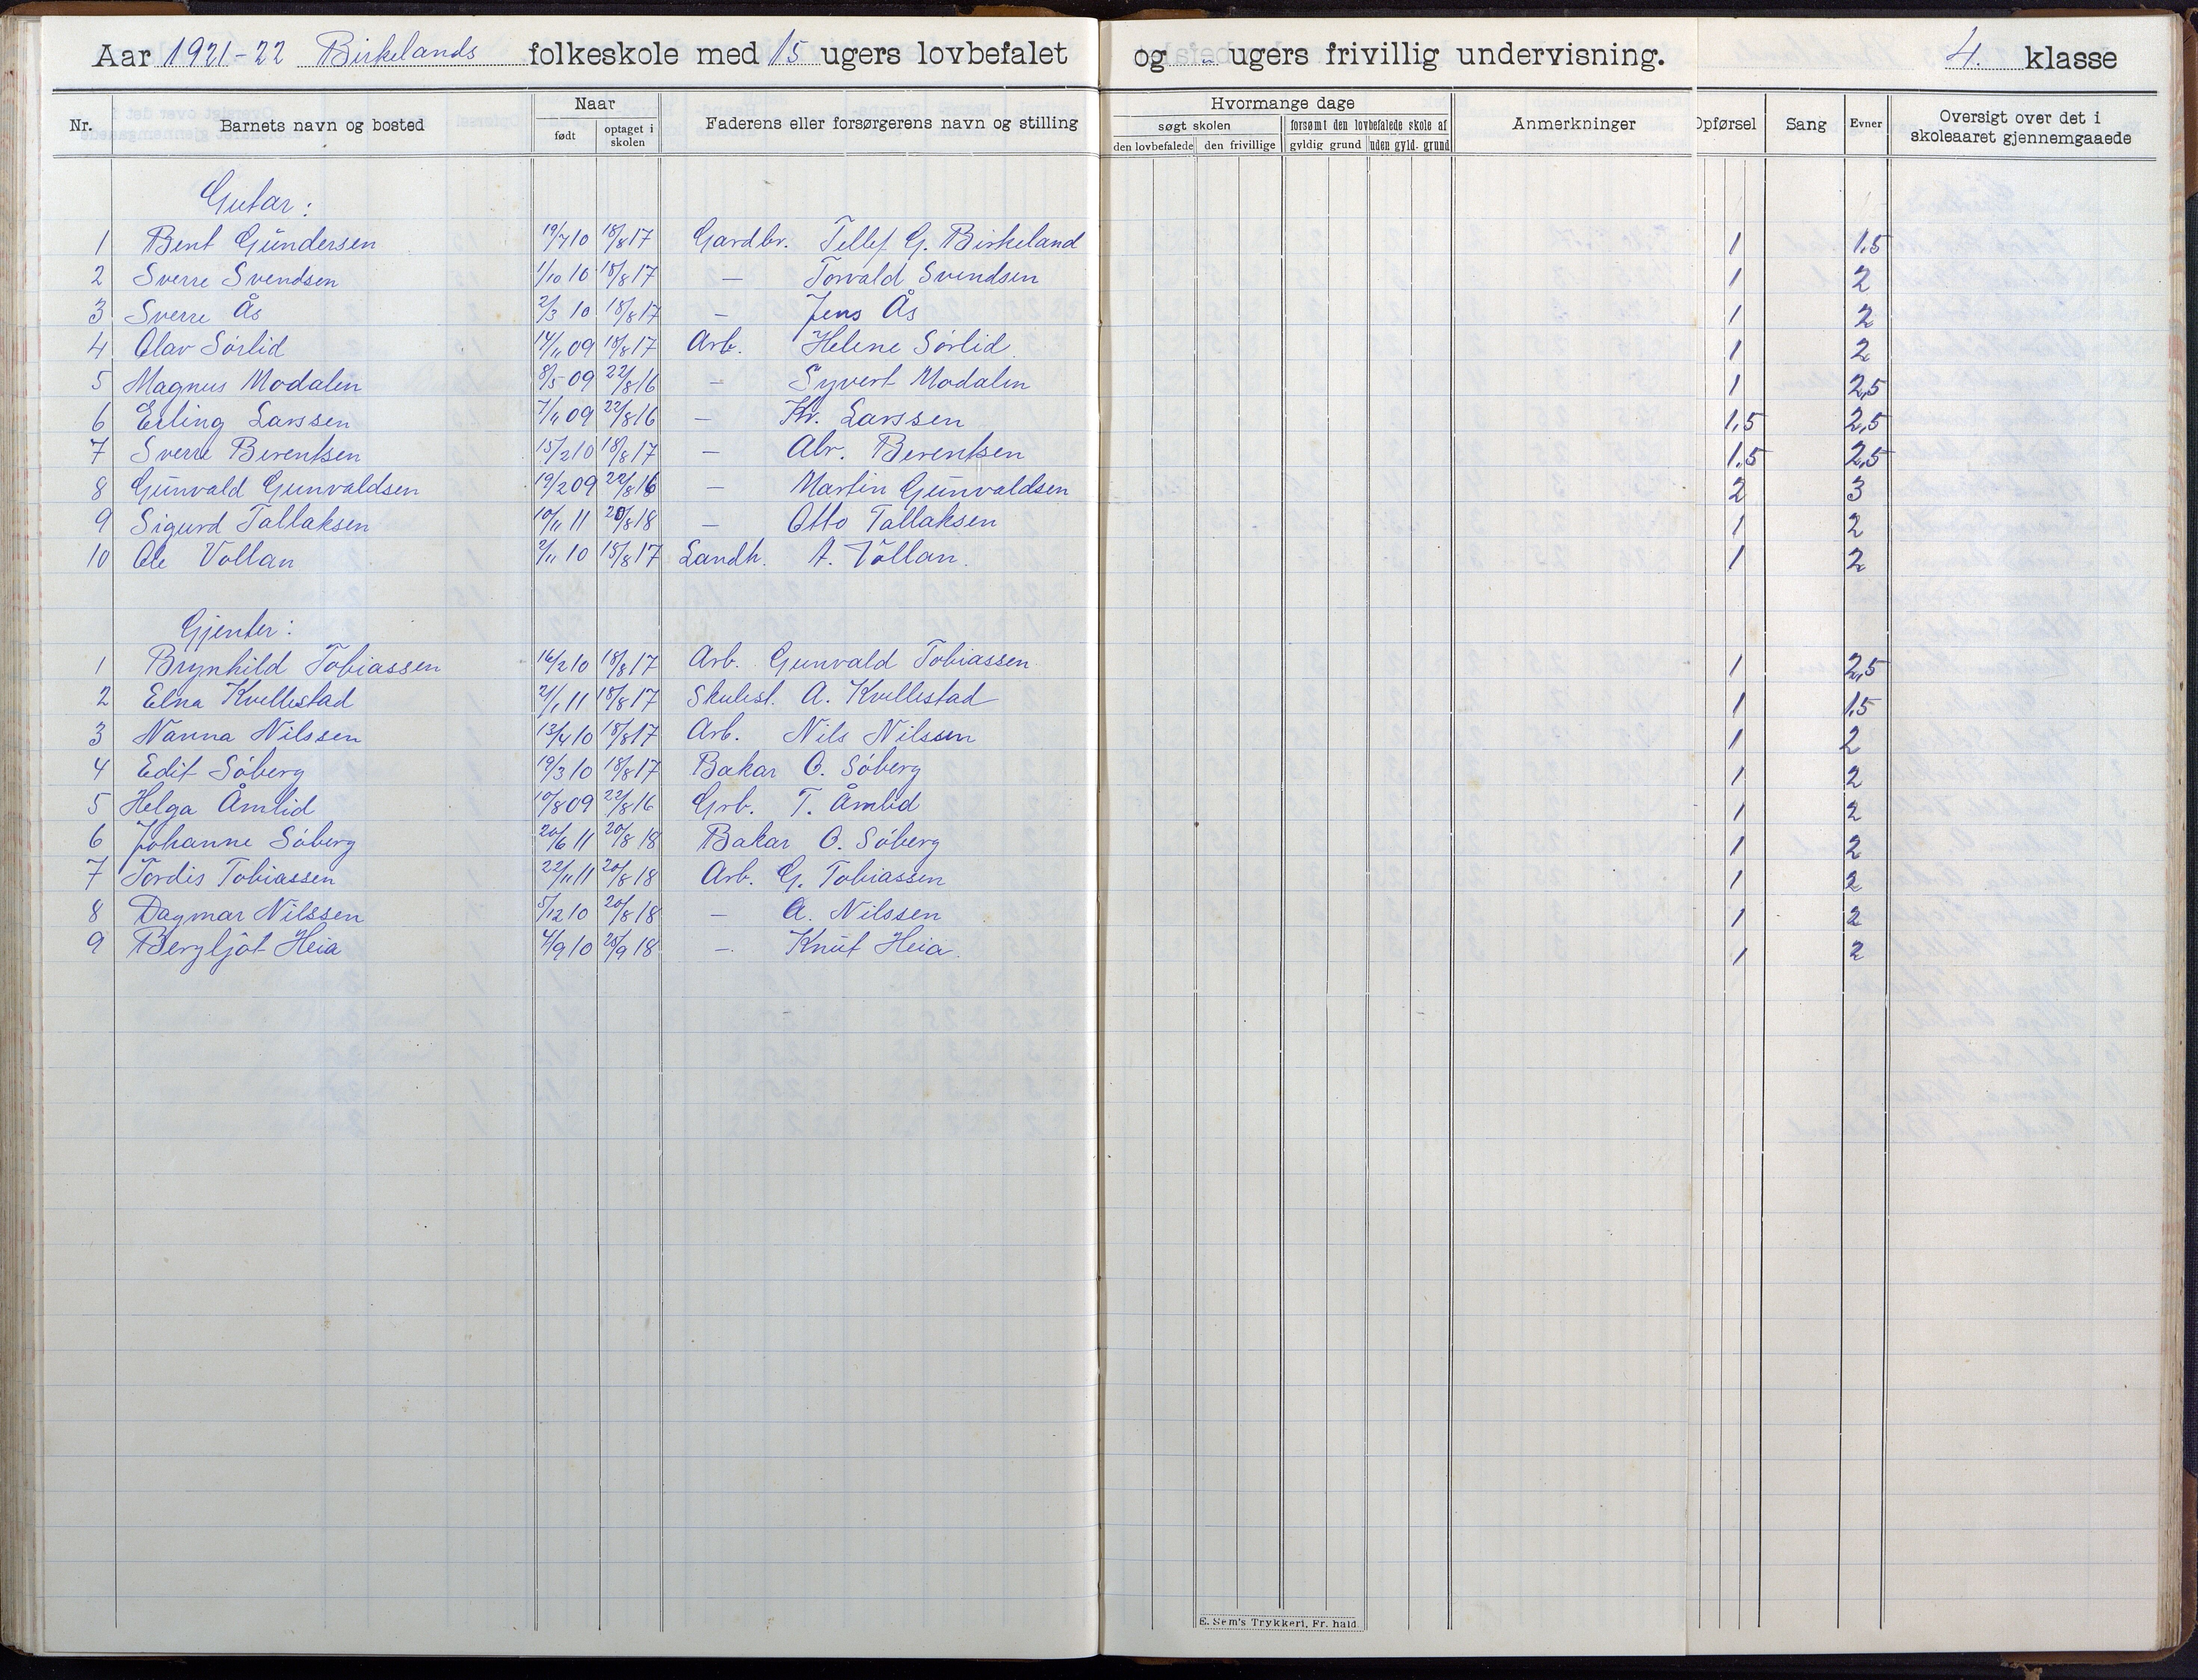 Aar 1921-22 Birkelands folkeskole med 15 ugers lovbefalet og - ugers frivillig undervisning. 4. klasse
Nr. Barnets navn og bosted Naar født optaget i skolen Faderens eller forsørgerens navn og stilling Hvormange dage søgt skolen den lovbefalede den frivillige forsømt den lovbefalede skole af gyldig grund uden gyld. grund Anmerkninger Opførsel Sang Evner Oversigt over det i skoleaaret gjennemgaaede
Gutar:
1 Bent Gundersen 19/7 10 18/8 17 Gardbr. Tellef G. Birkeland 1 1,5
2 Sverre Svendsen 1/10 10 18/8 17 — Torvald Svendsen 1 2
3 Sverre Ås 2/3 10 18/8 17 — Jens Ås 1 2
4 Olav Sørlid 14/11 09 18/8 17 Arb. Helene Sørlid 1 2
5 Magnus Modalen 8/5 09 22/8 16 — Syvert Modalen 1 2,5
6 Erling Larssen 7/11 09 22/8 16 — Kr. Larssen 1,5 2,5
7 Sverre Berentsen 15/2 10 18/8 17 — Abr. Berentsen 1,5 2,5
8 Gunvald Gunvaldsen 19/2 09 22/8 16 — Martin Gunvaldsen 2 3
9 Sigurd Tallaksen 10/11 11 20/8 18 — Otto Tallaksen 1 2
10 Ole Vollan 2/11 10 15/8 17 Landh. A. Vollan. 1 2
Gjenter:
1 Brynhild Tobiassen 16/2 10 18/8 17 Arb. Gunvald Tobiassen 1 2,5
2 Elna Kvellestad 2/1 11 18/8 17 Skulest. A. Kvellestad 1 1,5
3 Nanna Nilssen 13/4 10 18/8 17 Arb. Nils Nilssen 1 2
4 Edit Søberg 19/3 10 18/8 17 Bakar O. Søberg 1 2
5 Helga Åmlid 10/8 09 22/8 16 Grb. T. Åmlid 1 2
6 Johanne Søberg 20/6 11 20/8 18 Bakar O. Søberg 1 2
7 Tordis Tobiassen 22/11 11 20/8 18 Arb. G. Tobiassen 1 2
8 Dagmar Nilssen 5/12 10 20/8 18 — A. Nilssen 1 2
9 Bergljot Heia 4/9 10 25/9 18 — Knut Heia. 1 2
E. Sem's Trykkeri, Fr. hald